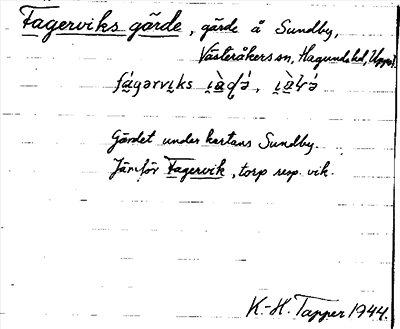 Fagerviks gärde, gärde å Sundby,
Västeråkers sn, Hagunda hd, Uppl.
Gärdet under kartans Sundby.
Jämför Fagervik, torp resp. vik.
K.-H. Tapper 1944.